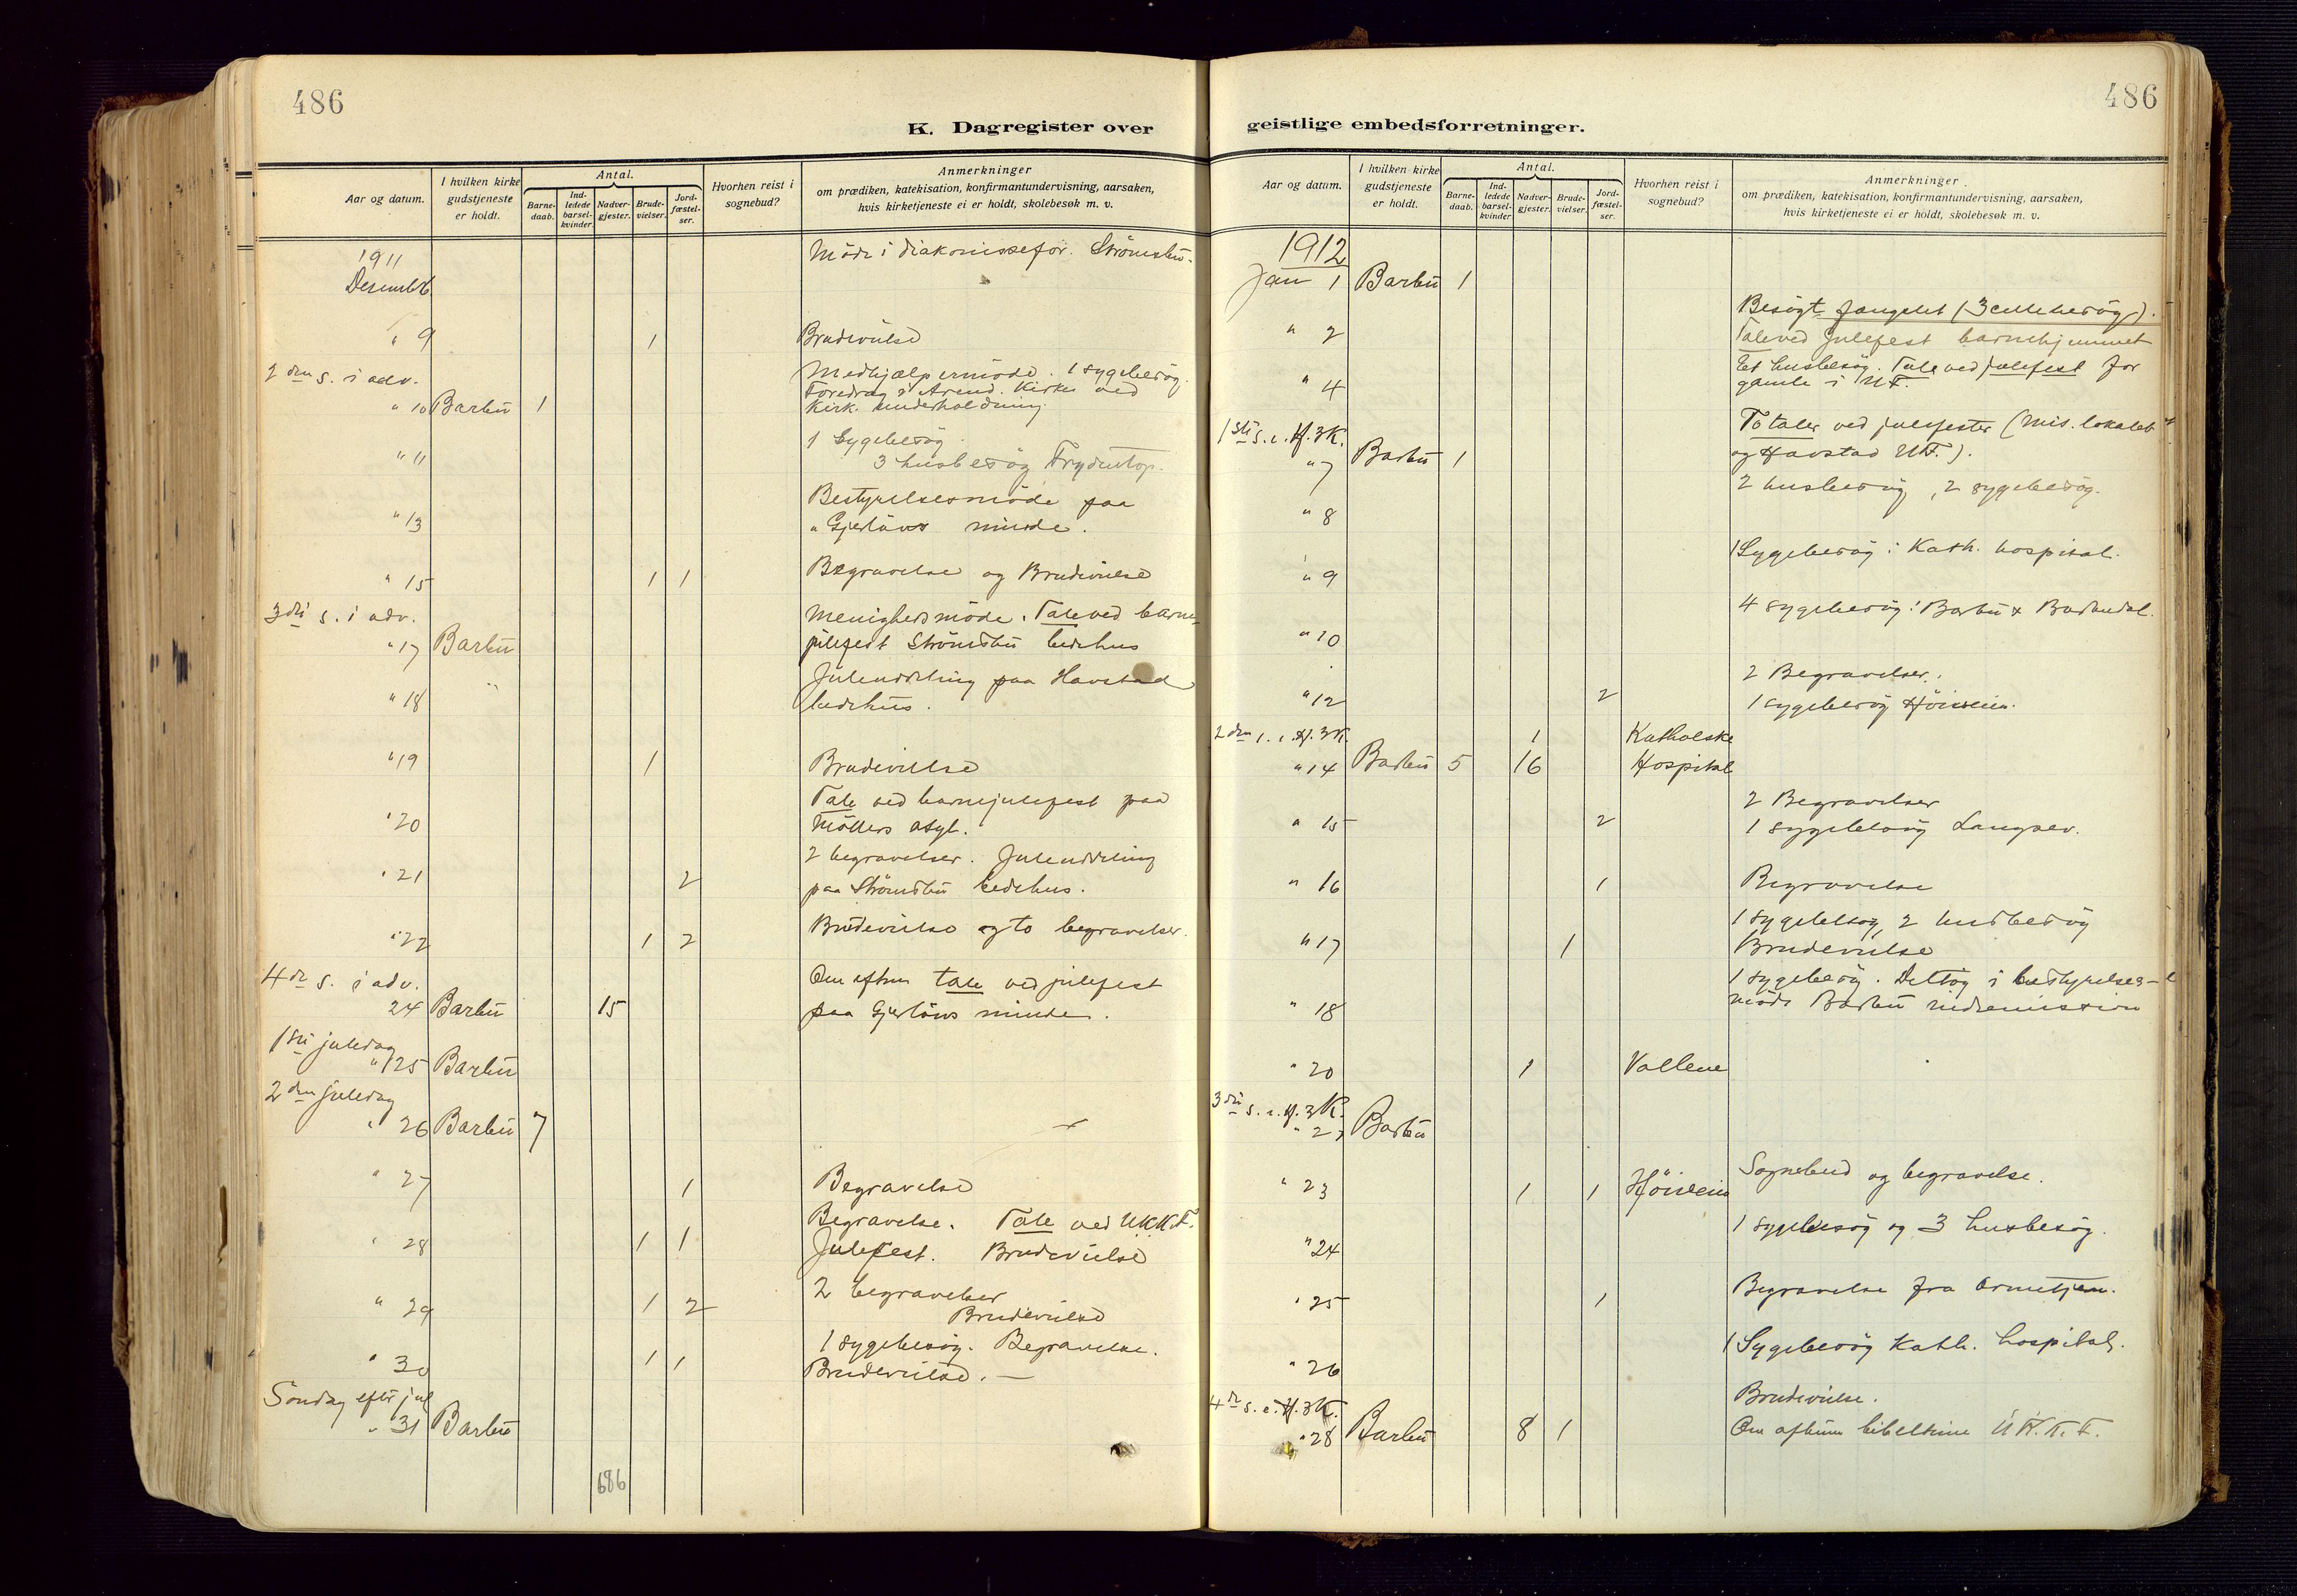 486
K. Dagregister over
Aar og datum.
I hvilken kirke gudstjeneste er holdt.
Antal.
Barne-daab.
Ind-ledede barsel-kvinder.
Nadver-gjester.
Brude-vielser.
Jord-fæstel-ser.
Hvorhen reist i sognebud?
Anmerkninger
om prædiken, katekisation, konfirmantundervisning, aarsaken,
hvis kirketjeneste ei er holdt, skolebesøk m. v.
1911
Møde i diakonissefor. Strømsbu.
Desember
" 9 1 Brudevielse
2den s. i adv.
Medhjælpermøde. 1 sygebesøg.
Foredrag i Arend. Kirke ved
" 10 Barbu 1 Kirk. underholdning.
1 Sygebesøg.
" 11 3 husbesøg Frydentop.
Bestyrelsesmøde paa
" 13 "Gjerløws minde.
" 15 1 1 Begravelse og Brudevielse
3die s. i adv.
Menighedsmøde. Tale ved barne-
" 17 Barbu julefest Strømsbu bedehus
Juleuddeling paa Havstad
" 18 " bedehus.
" 19 1 Brudevielse
Tale ved barnejulefest paa
" 20 Møllers asyl.
2 begravelser. Juleuddeling
" 21 2 paa Strømsbu bedehus.
" 22 1 2 Brudevielse og to begravelser.
4de s. i adv.
Om aften tale ved julefest
24 Barbu 15 paa Gjerløws minde.
1ste juledag
" 25 Barbu
2den juledag
" 26 Barbu 7
" 27 1 Begravelse
Begravelse. Tale ved U.K.K.F.
" 28 1 1 Julefest. Brudevielse
2 begravelser
" 29 1 2 Brudevielse
1 sygebesøg. Begravelse.
" 30 1 1 Brudevielse. —
Søndag efter jul
" 31 Barbu
686
486
geistlige embedsforretninger.
Aar og datum.
I hvilken kirke gudstjeneste er holdt.
Antal.
Barne-daab.
Ind-ledede barsel-kvinder
Nadver-gjester.
Brude-vielser.
Jord-fæstel-ser.
Hvorhen reist i sognebud?
Anmerkninger
om prædiken, katekisation, konfirmantundervisning, aarsaken,
hvis kirketjeneste ei er holdt, skolebesøk m. v.
1912
Jan 1 Barbu 1
Besøgt fængslet (3 cellebesøg).
" 2 Tale ved julefest barnehjemmet
Et husbesøg. Tale ved julefest for
" 4 gamle i U.F.
1ste s. e. H.3K.
To taler ved julefester (mis. lokalet
" 7 Barbu 1 og Havstad U.F.).
2 husbesøg, 2 sygebesøg.
" 8
1 Sygebesøg i Kath. hospital.
" 9
4 sygebesøg: Barbu & Barbudal.
" 10
2 Begravelser.
" 12 2 1 sygebesøg Høiveien.
2den s. e. H.3K. 1 Katholske
" 14 Barbu 5 16 Hospital
2 Begravelser
" 15 2 1 sygebesøg Langsev.
" 16 1 Begravelse
1 sygebesøg, 2 husbesøg
" 17 1 Brudevielse
1 sygebesøg. Deltog i bestyrelses-
" 18 møde Barbu indremission
" 20 1 Vollene
3die s. e. H.3K.
" 21 Barbu
" 23 1 1 Høiveien Sognebud og begravelse.
" 24 1 sygebesøg og 3 husbesøg.
" 25 1 Begravelse fra
1 Sygebesøg Kath. hospital.
" 26
4de s. e. H.3K.
Brudevielse.
" 28 Barbu 8 1 Om aftenen bibeltime U.K.K.F.